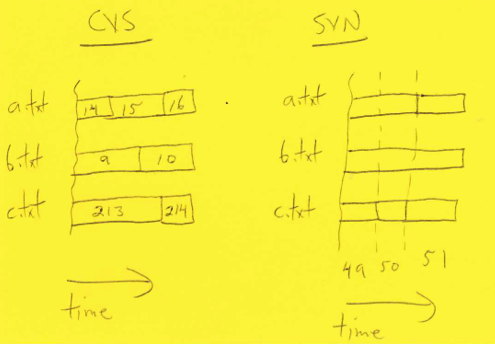 CVS
a.txt 14 15 16
b.txt 9 10
c.txt 213 214
time
SVN
a.txt
b.txt
c.txt
49 50 51
time